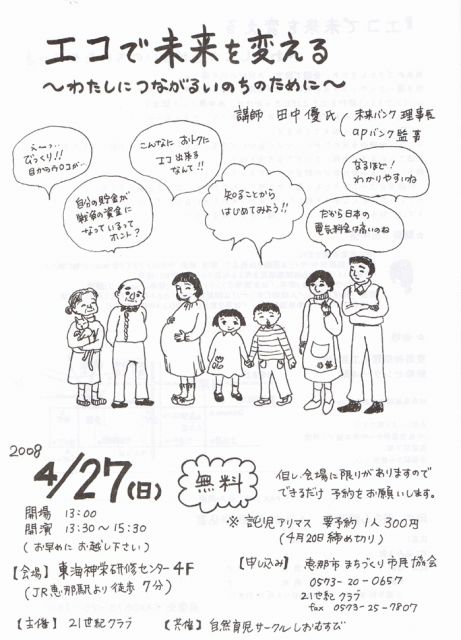 エコで未来を変える
〜わたしにつながるいのちのために〜
講師 田中優氏
未来バンク 理事長
apバンク 監事
えーっ、
びっくり!!
目からウロコが…
こんなに おトクに
エコ出来る
なんて!!
なるほど!
わかりやすいね
自分の貯金が
戦争の資金に
なっているって
ホント?
知ることから
はじめてみよう!!
だから日本の
電気料金は高いのね
2008
4/27(日)
無料
但し、会場に限りがありますので
できるだけ 予約をお願いします。
開場 13:00
開演 13:30〜15:30
(お早めに お越し下さい)
※ 託児アリマス 要予約 1人300円
(4月20日締めきり)
【会場】東海神栄研修センター4F
(JR恵那駅より徒歩7分)
【申し込み】恵那市まちづくり市民協会
0573-20-0657
21世紀クラブ
fax 0573-25-7807
【主催】21世紀クラブ
【共催】自然育児サークルしおむすび